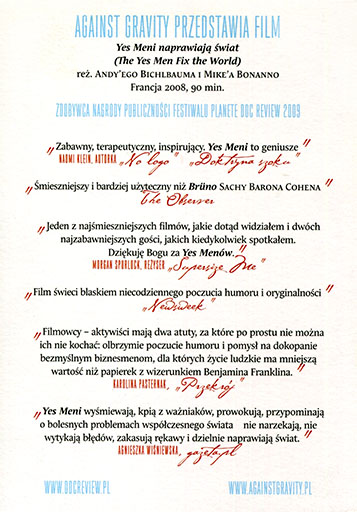 AGAINST GRAVITY PRZEDSTAWIA FILM
Yes Meni naprawiają świat
(The Yes Men Fix the World)
reż. Andy'ego Bichlbauma i Mike'a Bonanno
Francja 2008, 90 min.
ZDOBYWCA NAGRODY PUBLICZNOŚCI FESTIWALU PLANETE DOC REVIEW 2009
„Zabawny, terapeutyczny, inspirujący. Yes Meni to geniusze”
NAOMI KLEIN, AUTORKA „No logo” „Doktryna szoku”
„Śmieszniejszy i bardziej użyteczny niż Brüno Sachy Barona Cohena”
The Observer
„Jeden z najśmieszniejszych filmów, jakie dotąd widziałem i dwóch
najzabawniejszych gości, jakich kiedykolwiek spotkałem.
Dziękuję Bogu za Yes Menów.”
MORGAN SPURLOCK, REŻYSER „Supersize Me”
„Film świeci blaskiem niecodziennego poczucia humoru i oryginalności”
„Newsweek”
„Filmowcy – aktywiści mają dwa atuty, za które po prostu nie można
ich nie kochać: olbrzymie poczucie humoru i pomysł na dokopanie
bezmyślnym biznesmenom, dla których życie ludzkie ma mniejszą
wartość niż papierek z wizerunkiem Benjamina Franklina.”
KAROLINA PASTERNAK, „Przekrój”
„Yes Meni wyśmiewają, kpią z ważniaków, prowokują, przypominają
o bolesnych problemach współczesnego świata nie narzekają, nie
wytykają błędów, zakasują rękawy i dzielnie naprawiają świat.”
AGNIESZKA WIŚNIEWSKA, gazeta.pl
WWW.DOCREVIEW.PL
WWW.AGAINSTGRAVITY.PL